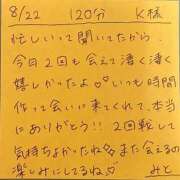 8/22 120分 K様
忙しいって聞いてたから、
今日2回も会えて凄く凄く
嬉しかったよ♡いつも時間
作って会いに来てくれて、本
当にありがとう!!2回転して
気持ちよかったね♡また会えるの
楽しみにしてるね♡ みと